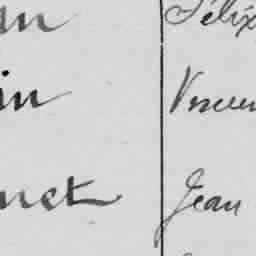 an Félix
in Vincen
net Jean